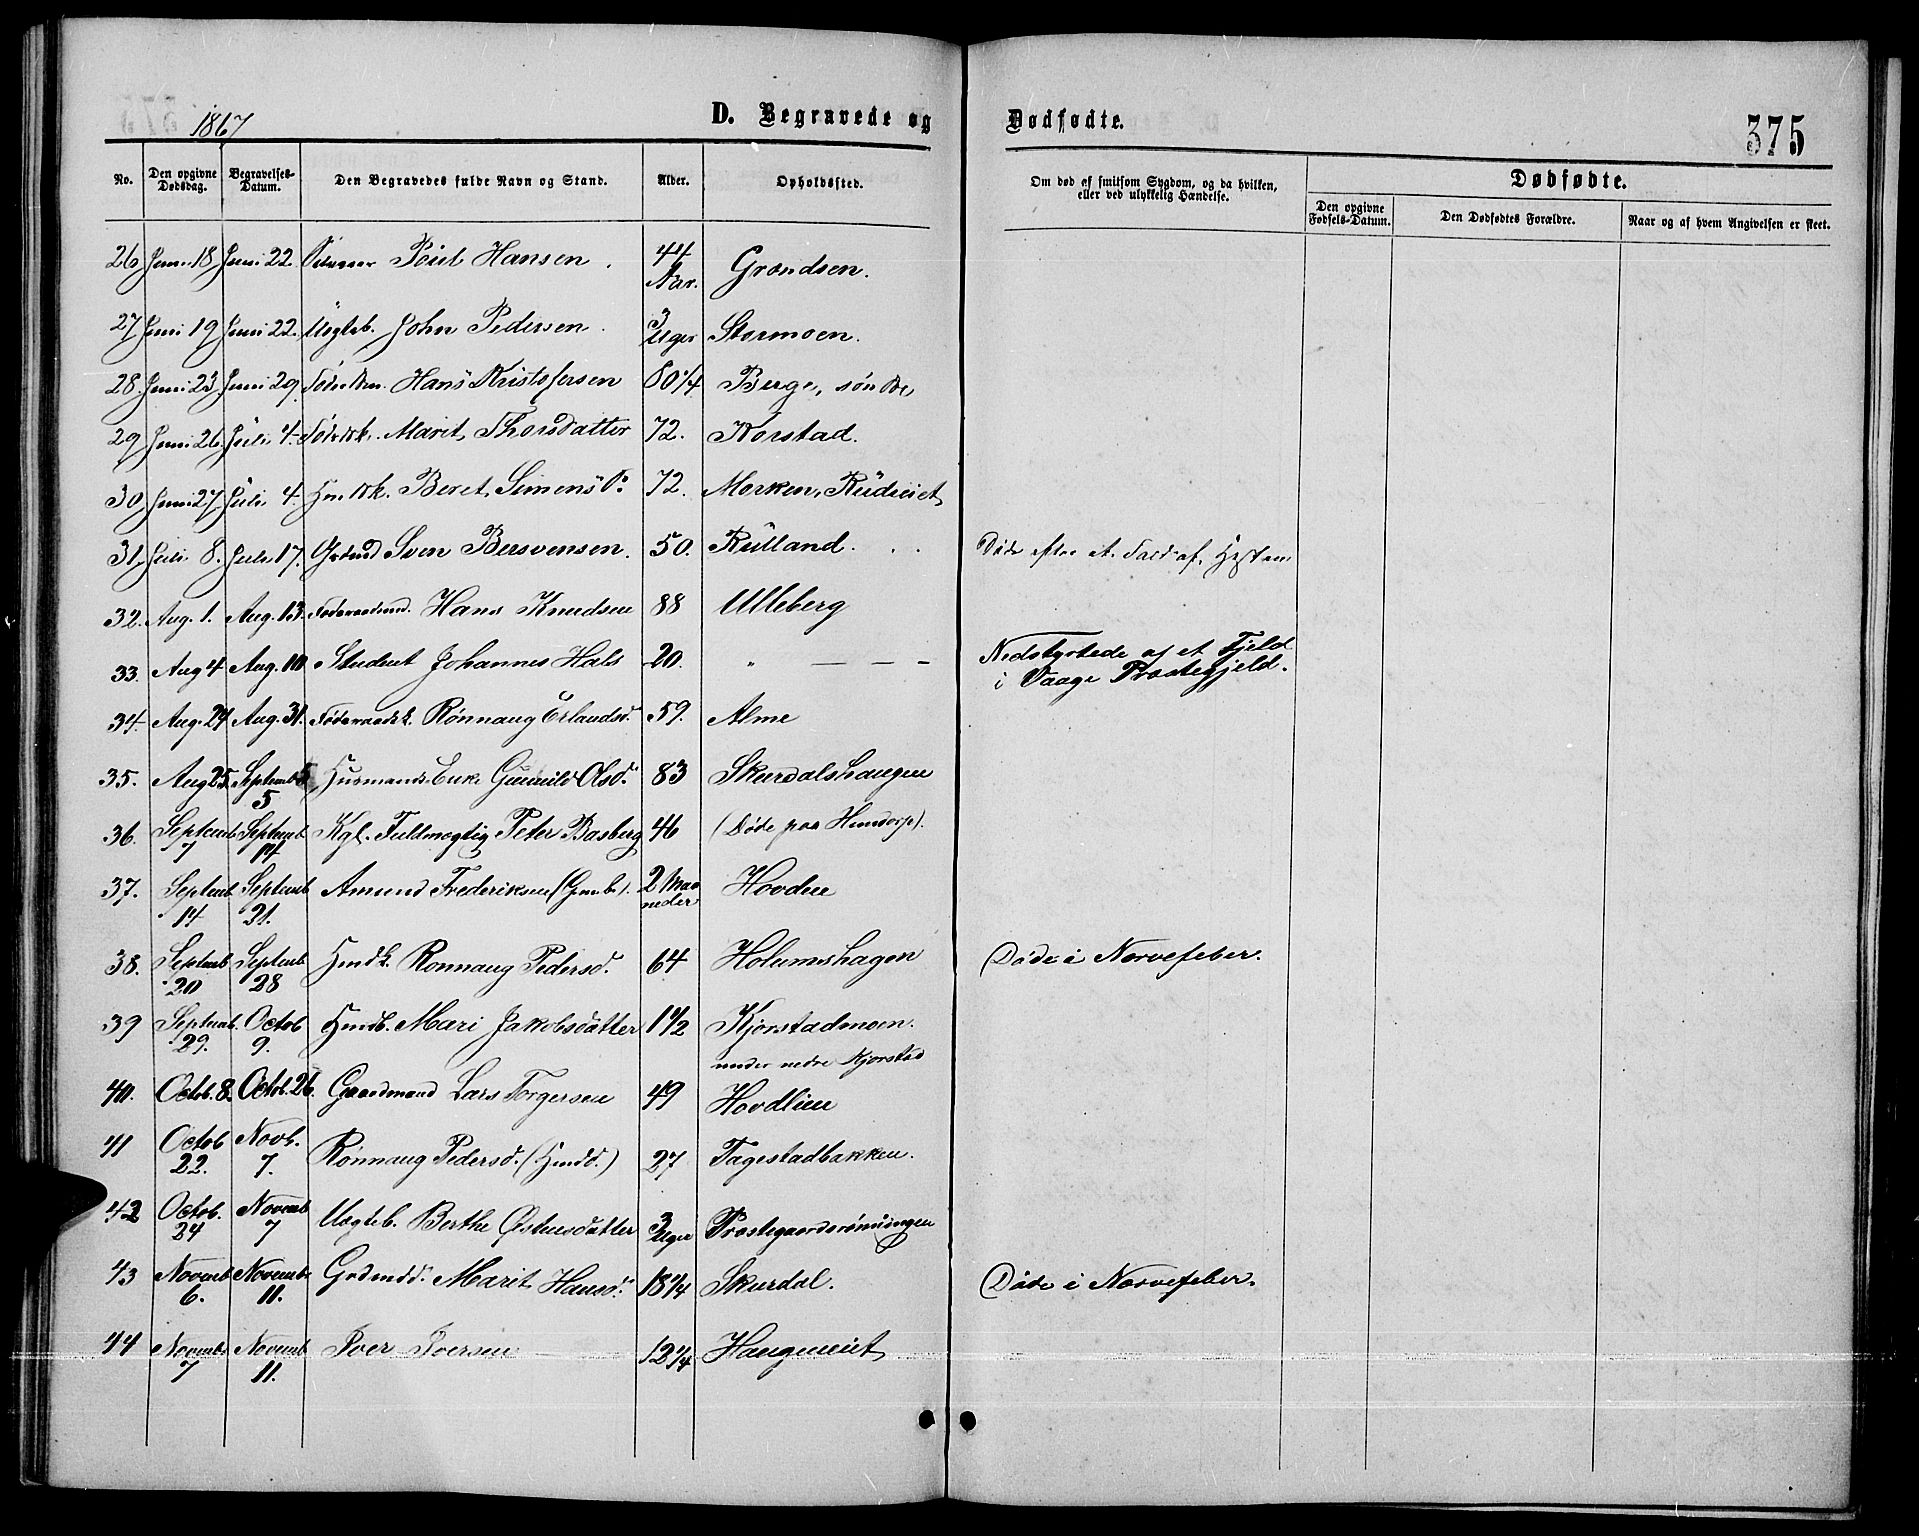 1867
D. Begravede og Dødfødte.
375
No.
Den opgivne Dødsdag.
Begravelses-Datum.
Den Begravedes fulde Navn og Stand.
Alder.
Opholdssted.
Om død af smitsom Sygdom, og da hvilken, eller ved ulykkelig Hændelse.
Dødfødte.
Den opgivne Fødsels-Datum.
Den Dødfødtes Forældre.
Naar og af hvem Angivelsen er skeet.
26 Juni 18 Juni 22. Poul Hansen 44 Aar.
27 Juni 19 Juni 22. Uægteb. John Pedersen. 3 Uger Stormoen.
28. Juni 23 Juni 29. Hans Kristofersen 80 1/4 Berge, søndre
29 Juni 26 Juli 4 Marit Thorsdatter 72. Korstad.
30 Juni 27 Juli 4. Beret Simensd: 72. Morken, Rudseiet
31. Juli 8. Juli 17. Grdmd Sven Bersvensen. 50. Rulland. Døde efter et Fald af Hesten
32. Aug. 1. Aug. 13. Føderaadsmd. Hans Knudsen 88 Ulleberg
33. Aug 4 Aug. 10 Student Johannes Hals 20. " — — — Nedstyrtede af et Fjeld
i Vaage Præstegjeld.
34. Aug. 24 Aug. 31. Føderaadsk. Rønnaug Erlandsd. 59. Alme
35. Aug 25. Septemb 5 Husmands Enke Gunild Olsd. 83 Skurdalshaugen
36. Septemb 7 Septemb 14 Kgl. Fuldmægtig Peter Basberg 46 (Døde paa Hundorp).
37. Septemb 14 Septemb 21. Amund Frederiksen (Gmb). 2 Maaneder Hovdee
38. Septemb 20 Septemb 28 Hmdk. Rønnaug Pedersd. 64 Holumshagen Døde i Nervefeber.
39 Septemb. 29. Octob 9. Hmdb. Mari Jakobsdatter 1 1/2 Kjorstadmoen.
under nedre Kjorstad
40. Octob. 8. Octob. 26. Gaardmand Lars Torgersen 49 Hovdlien
41 Octob 22. Novb. 7. Rønnaug Pedersd. (Hmdd.) 27 Tagestadbakken.
42 Octob. 24 Novemb 7 Uægteb. Berthe Østensdatter 3 Uger Præstegaardsrønningen
43 Novemb 6. Novemb. 11. Grdmdd. Marit Hansd. 18 1/4 Skurdal. Døde i Nervefeber.
44 Novemb. 7 Novemb 11. Iver Iversen 12 1/4 Haugeneiet